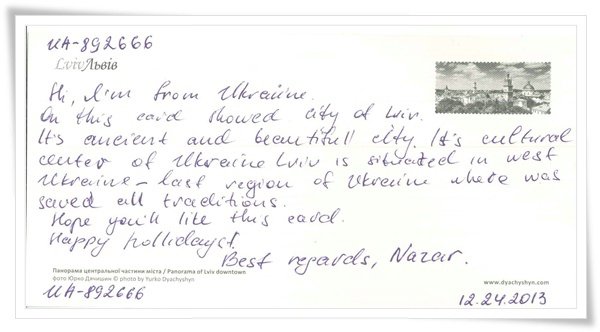 UA-892666
LvivЛьвів
Hi, I'm from Ukraine.
On this card showed city of Lviv.
It's ancient and beautifull city. It's cultural
center of Ukraine Lviv is situated in west
Ukraine - last region of Ukraine where was
saved all traditions.
Hope you'll like this card.
Happy hollidays!
Best regards, Nazar.
Панорама центральної частини міста / Panorama of Lviv downtown
фото Юрко Дячишин © photo by Yurko Dyachyshyn
www.dyachyshyn.com
UA-892666
12.24.2013